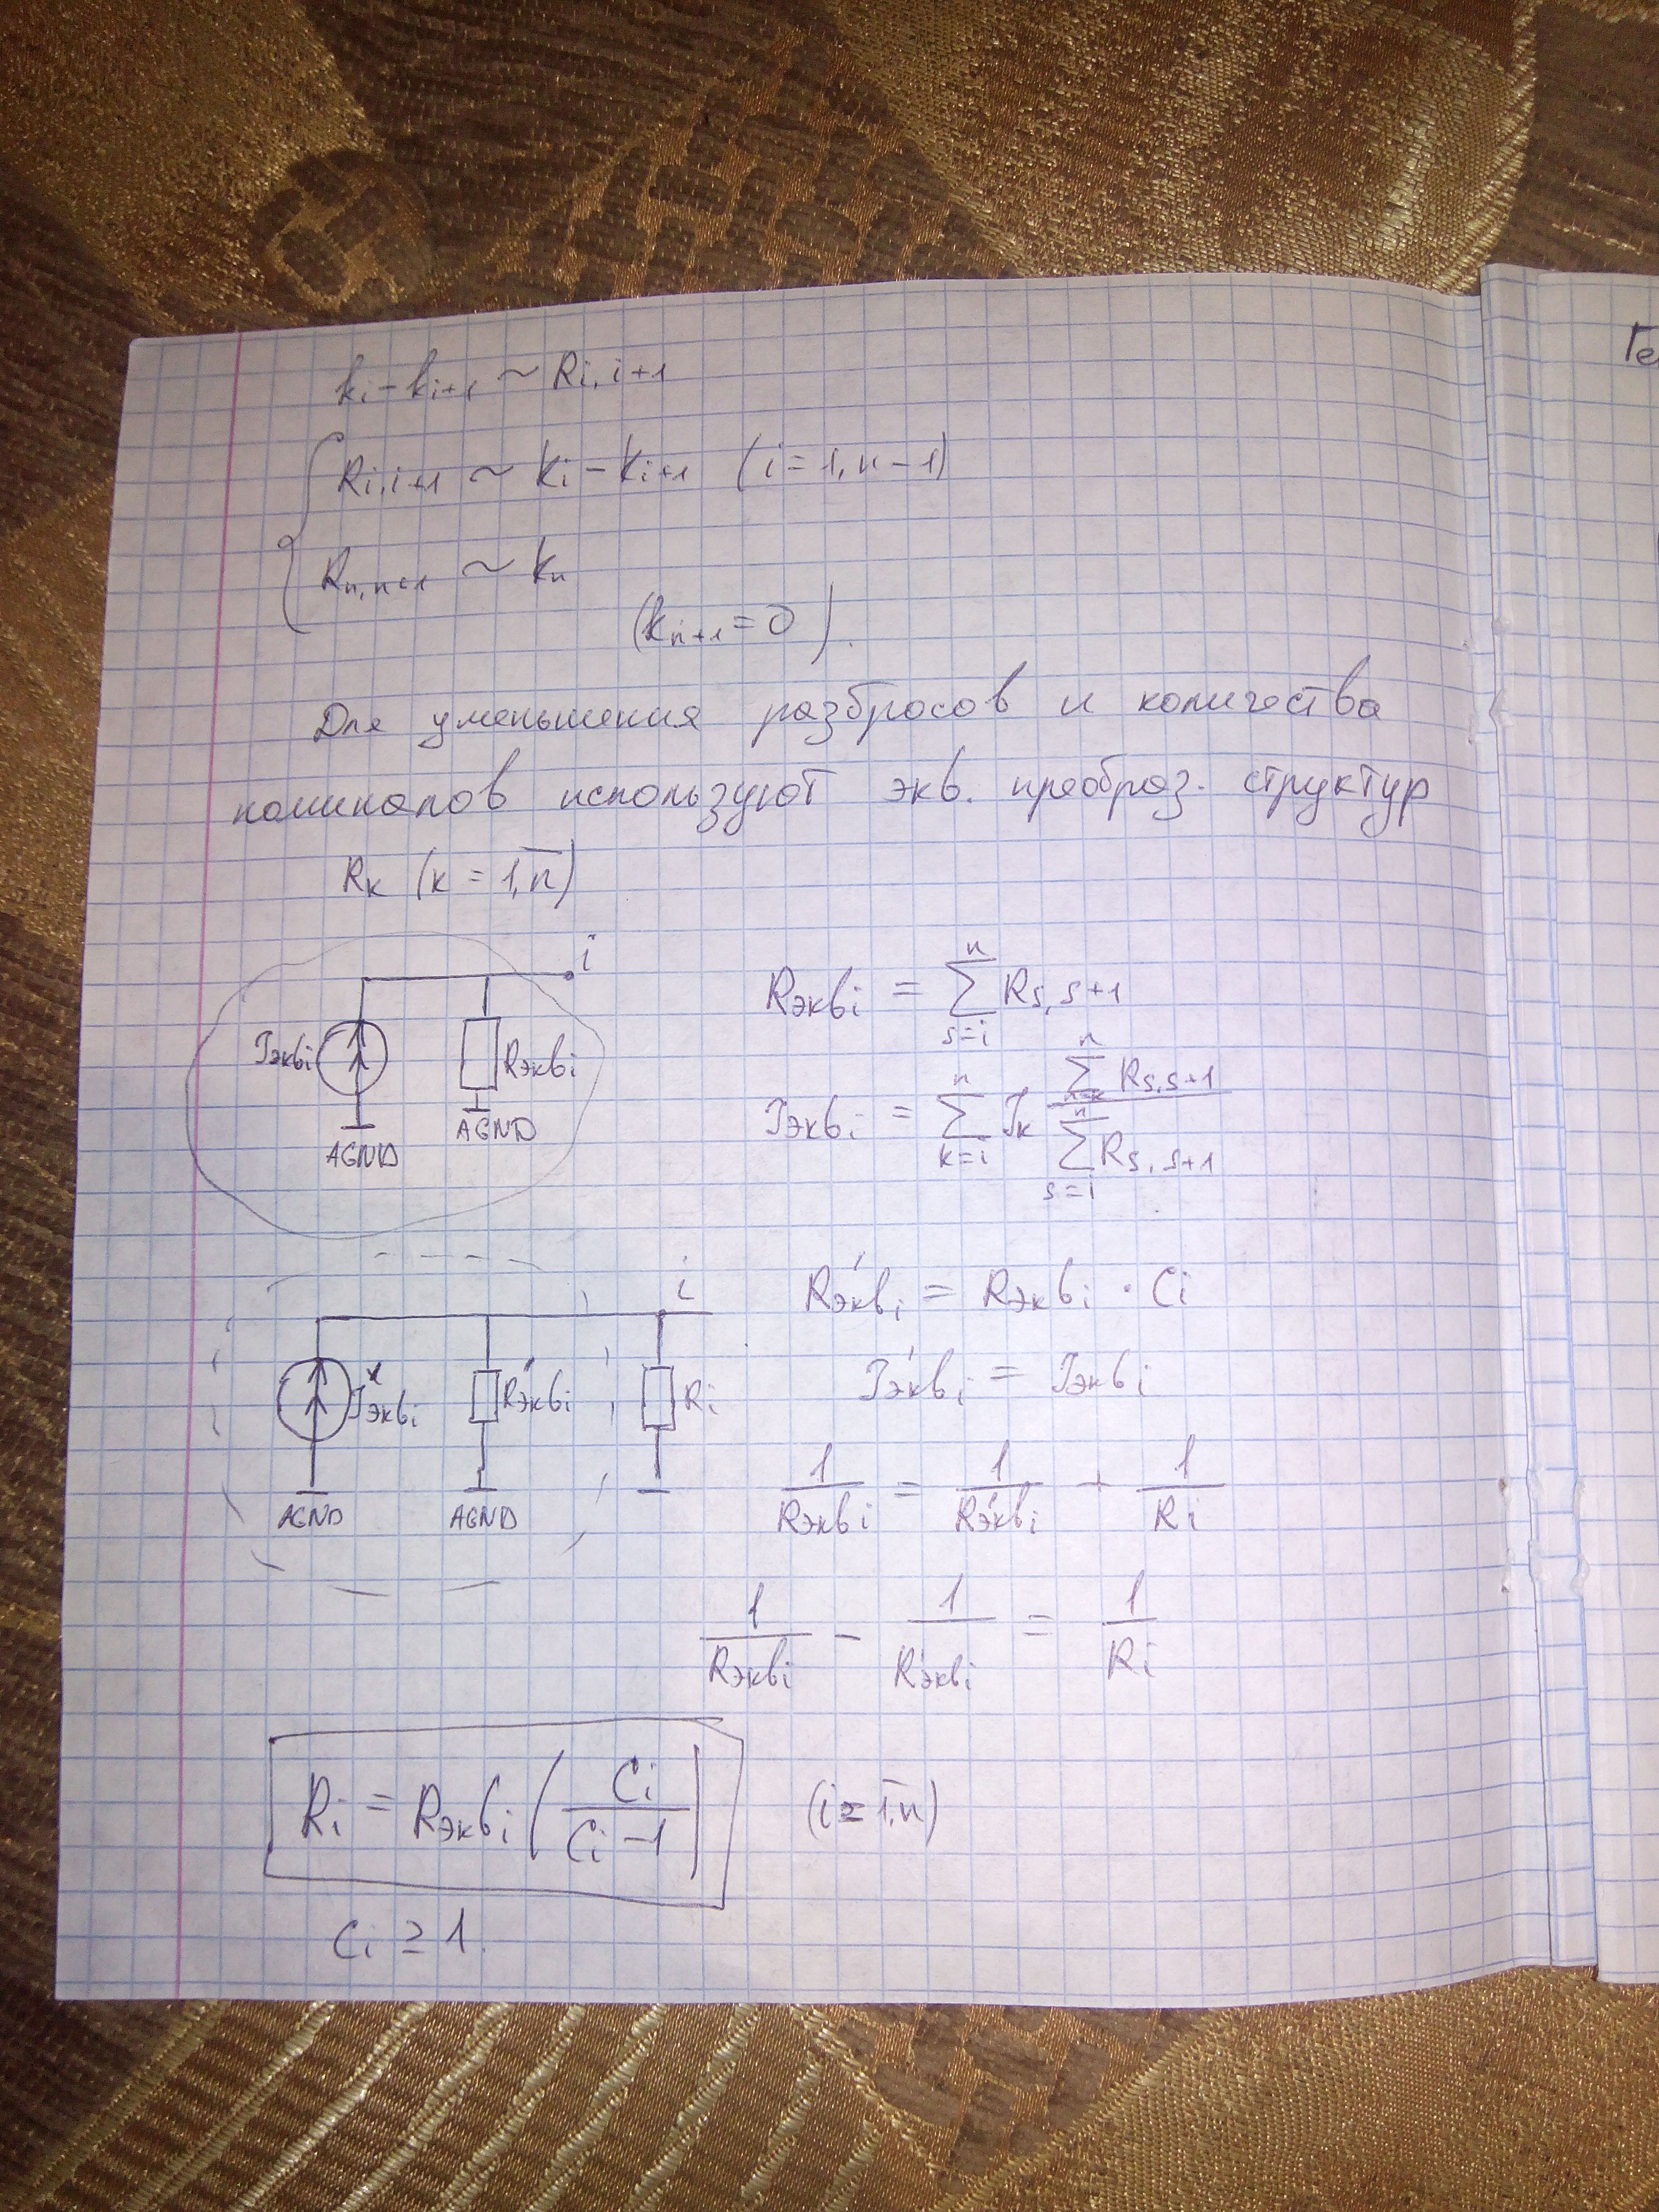 ki - ki+1 ~ Ri,i+1
Ri,i+1 ~ Ki - Ki+1 (i=1,n-1)
Rn,n+1 ~ kn
(kn+1 = 0).
Для уменьшения разбросов и количества
номиналов используют экв. преобраз. структур
Rк (к = 1,n)
i
Jэквi
Rэквi
AGND
AGND
Rэквi = ∑(s=i…n) Rs,s+1
Jэквi = ∑(k=i…n) Jк ∑ Rs,s+1 / ∑(s=i…n) Rs,s+1
i
J'эквi
R'эквi
Ri
AGND
AGND
R'эквi = Rэквi · Ci
J'эквi = Jэквi
1/Rэквi = 1/R'эквi + 1/Ri
1/Rэквi - 1/R'эквi = 1/Ri
Ri = Rэквi (Ci/(Ci-1)) (i = 1,n)
Ci ≥ 1.
Ге